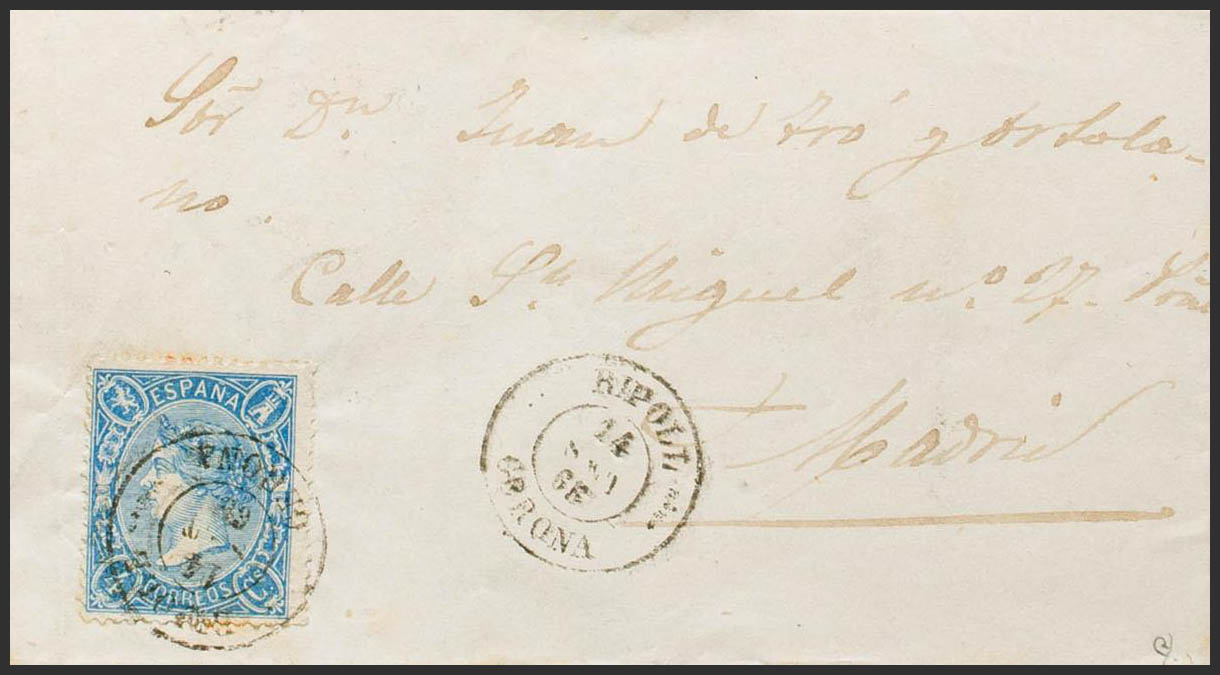 Sor Dn Juan de Fró y Ortola-
no.
Calle Sn Miguel nº 27.
Madrid
ESPAÑA
CORREOS
RIPOLL
14
66
GERONA
GERONA
14